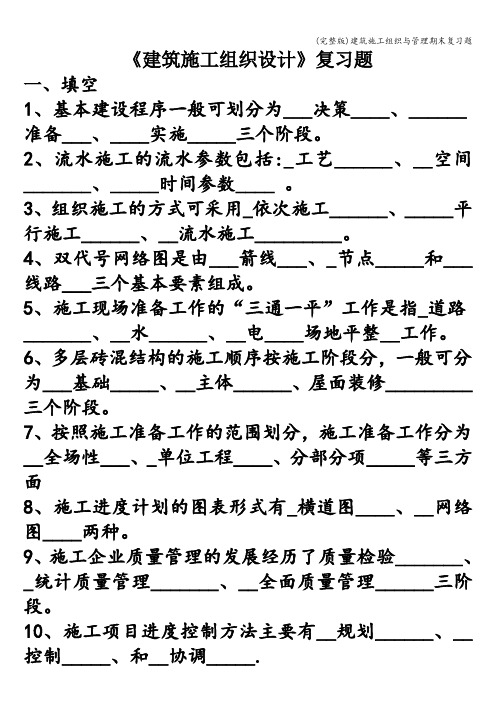 (完整版)建筑施工组织与管理期末复习题
《建筑施工组织设计》复习题
一、填空
1、基本建设程序一般可划分为___决策____、______
准备___、____实施_____三个阶段。
2、流水施工的流水参数包括:_工艺______、__空间
_______、_____时间参数____ 。
3、组织施工的方式可采用_依次施工______、_____平
行施工______、__流水施工_________。
4、双代号网络图是由___箭线___、_节点_____和___
线路___三个基本要素组成。
5、施工现场准备工作的“三通一平”工作是指_道路
_______、___水______、__电____场地平整__工作。
6、多层砖混结构的施工顺序按施工阶段分，一般可分
为___基础_____、__主体______、屋面装修_________
三个阶段。
7、按照施工准备工作的范围划分，施工准备工作分为
__全场性___、_单位工程____、分部分项_____等三方
面
8、施工进度计划的图表形式有_横道图____、__网络
图____两种。
9、施工企业质量管理的发展经历了质量检验_______、
_统计质量管理_______、__全面质量管理______三阶
段。
10、施工项目进度控制方法主要有__规划______、__
控制_____、和__协调_____.